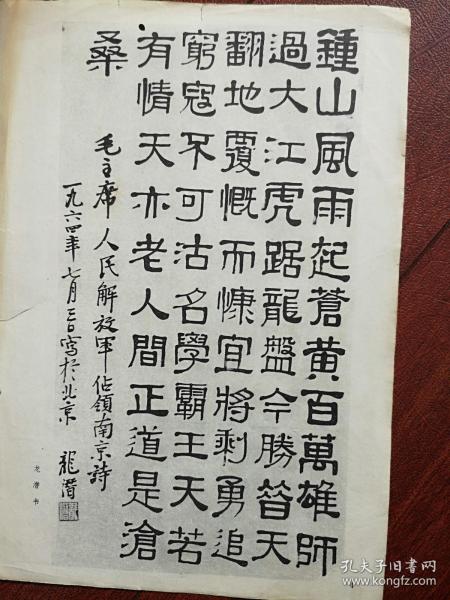 鍾山風雨起蒼黄百萬雄師
過大江虎踞龍盤今勝昔天
翻地覆慨而慷宜將剩勇追
窮寇不可沽名學霸王天若
有情天亦老人間正道是滄
桑
毛主席人民解放軍佔領南京詩
一九六四年七月三日寫於北京 龍潛
龙潜书
孔夫子旧书网